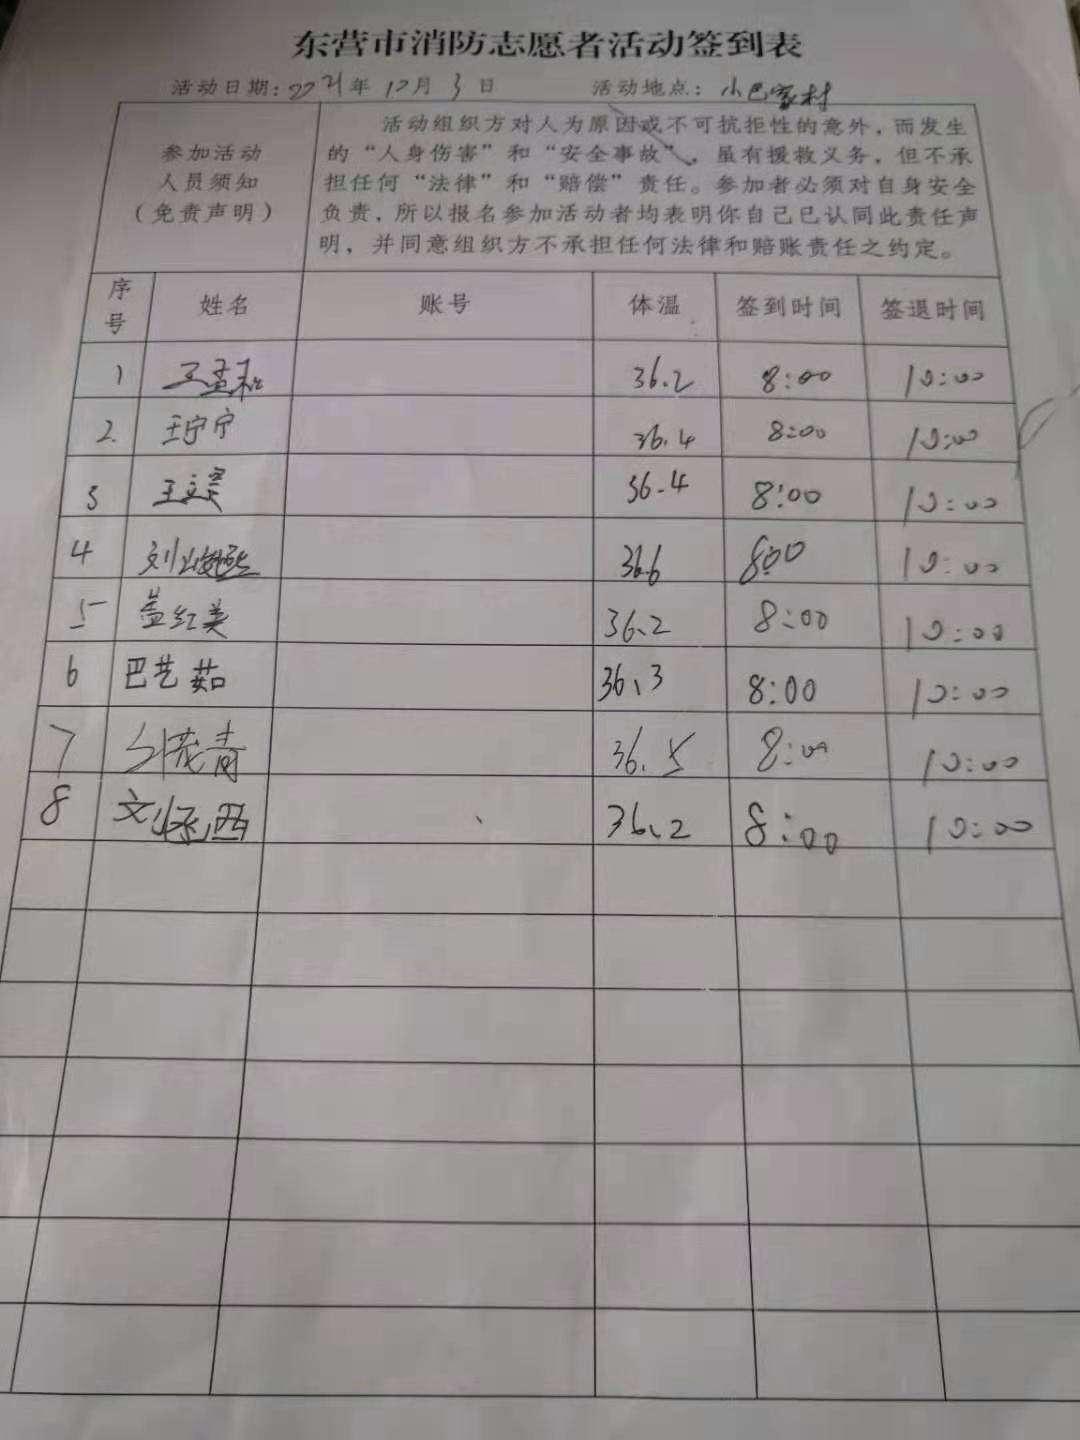 东营市消防志愿者活动签到表
活动日期：2021年12月3日 活动地点：小巴家村
参加活动
人员须知
（免责声明）
活动组织方对人为原因或不可抗拒性的意外，而发生
的“人身伤害”和“安全事故”，虽有援救义务，但不承
担任何“法律”和“赔偿”责任。参加者必须对自身安全
负责，所以报名参加活动者均表明你自己已认同此责任声
明，并同意组织方不承担任何法律和赔账责任之约定。
序号 姓名 账号 体温 签到时间 签退时间
1 王孟 36.2 8:00 10:00
2. 王宁宁 36.4 8:00 10:00
3 王立 36.4 8:00 10:00
4 刘 36.6 8:00 10:00
5 盖红美 36.2 8:00 10:00
6 巴艺茹 36.3 8:00 10:00
7 青 36.5 8:00 10:00
8 36.2 8:00 10:00